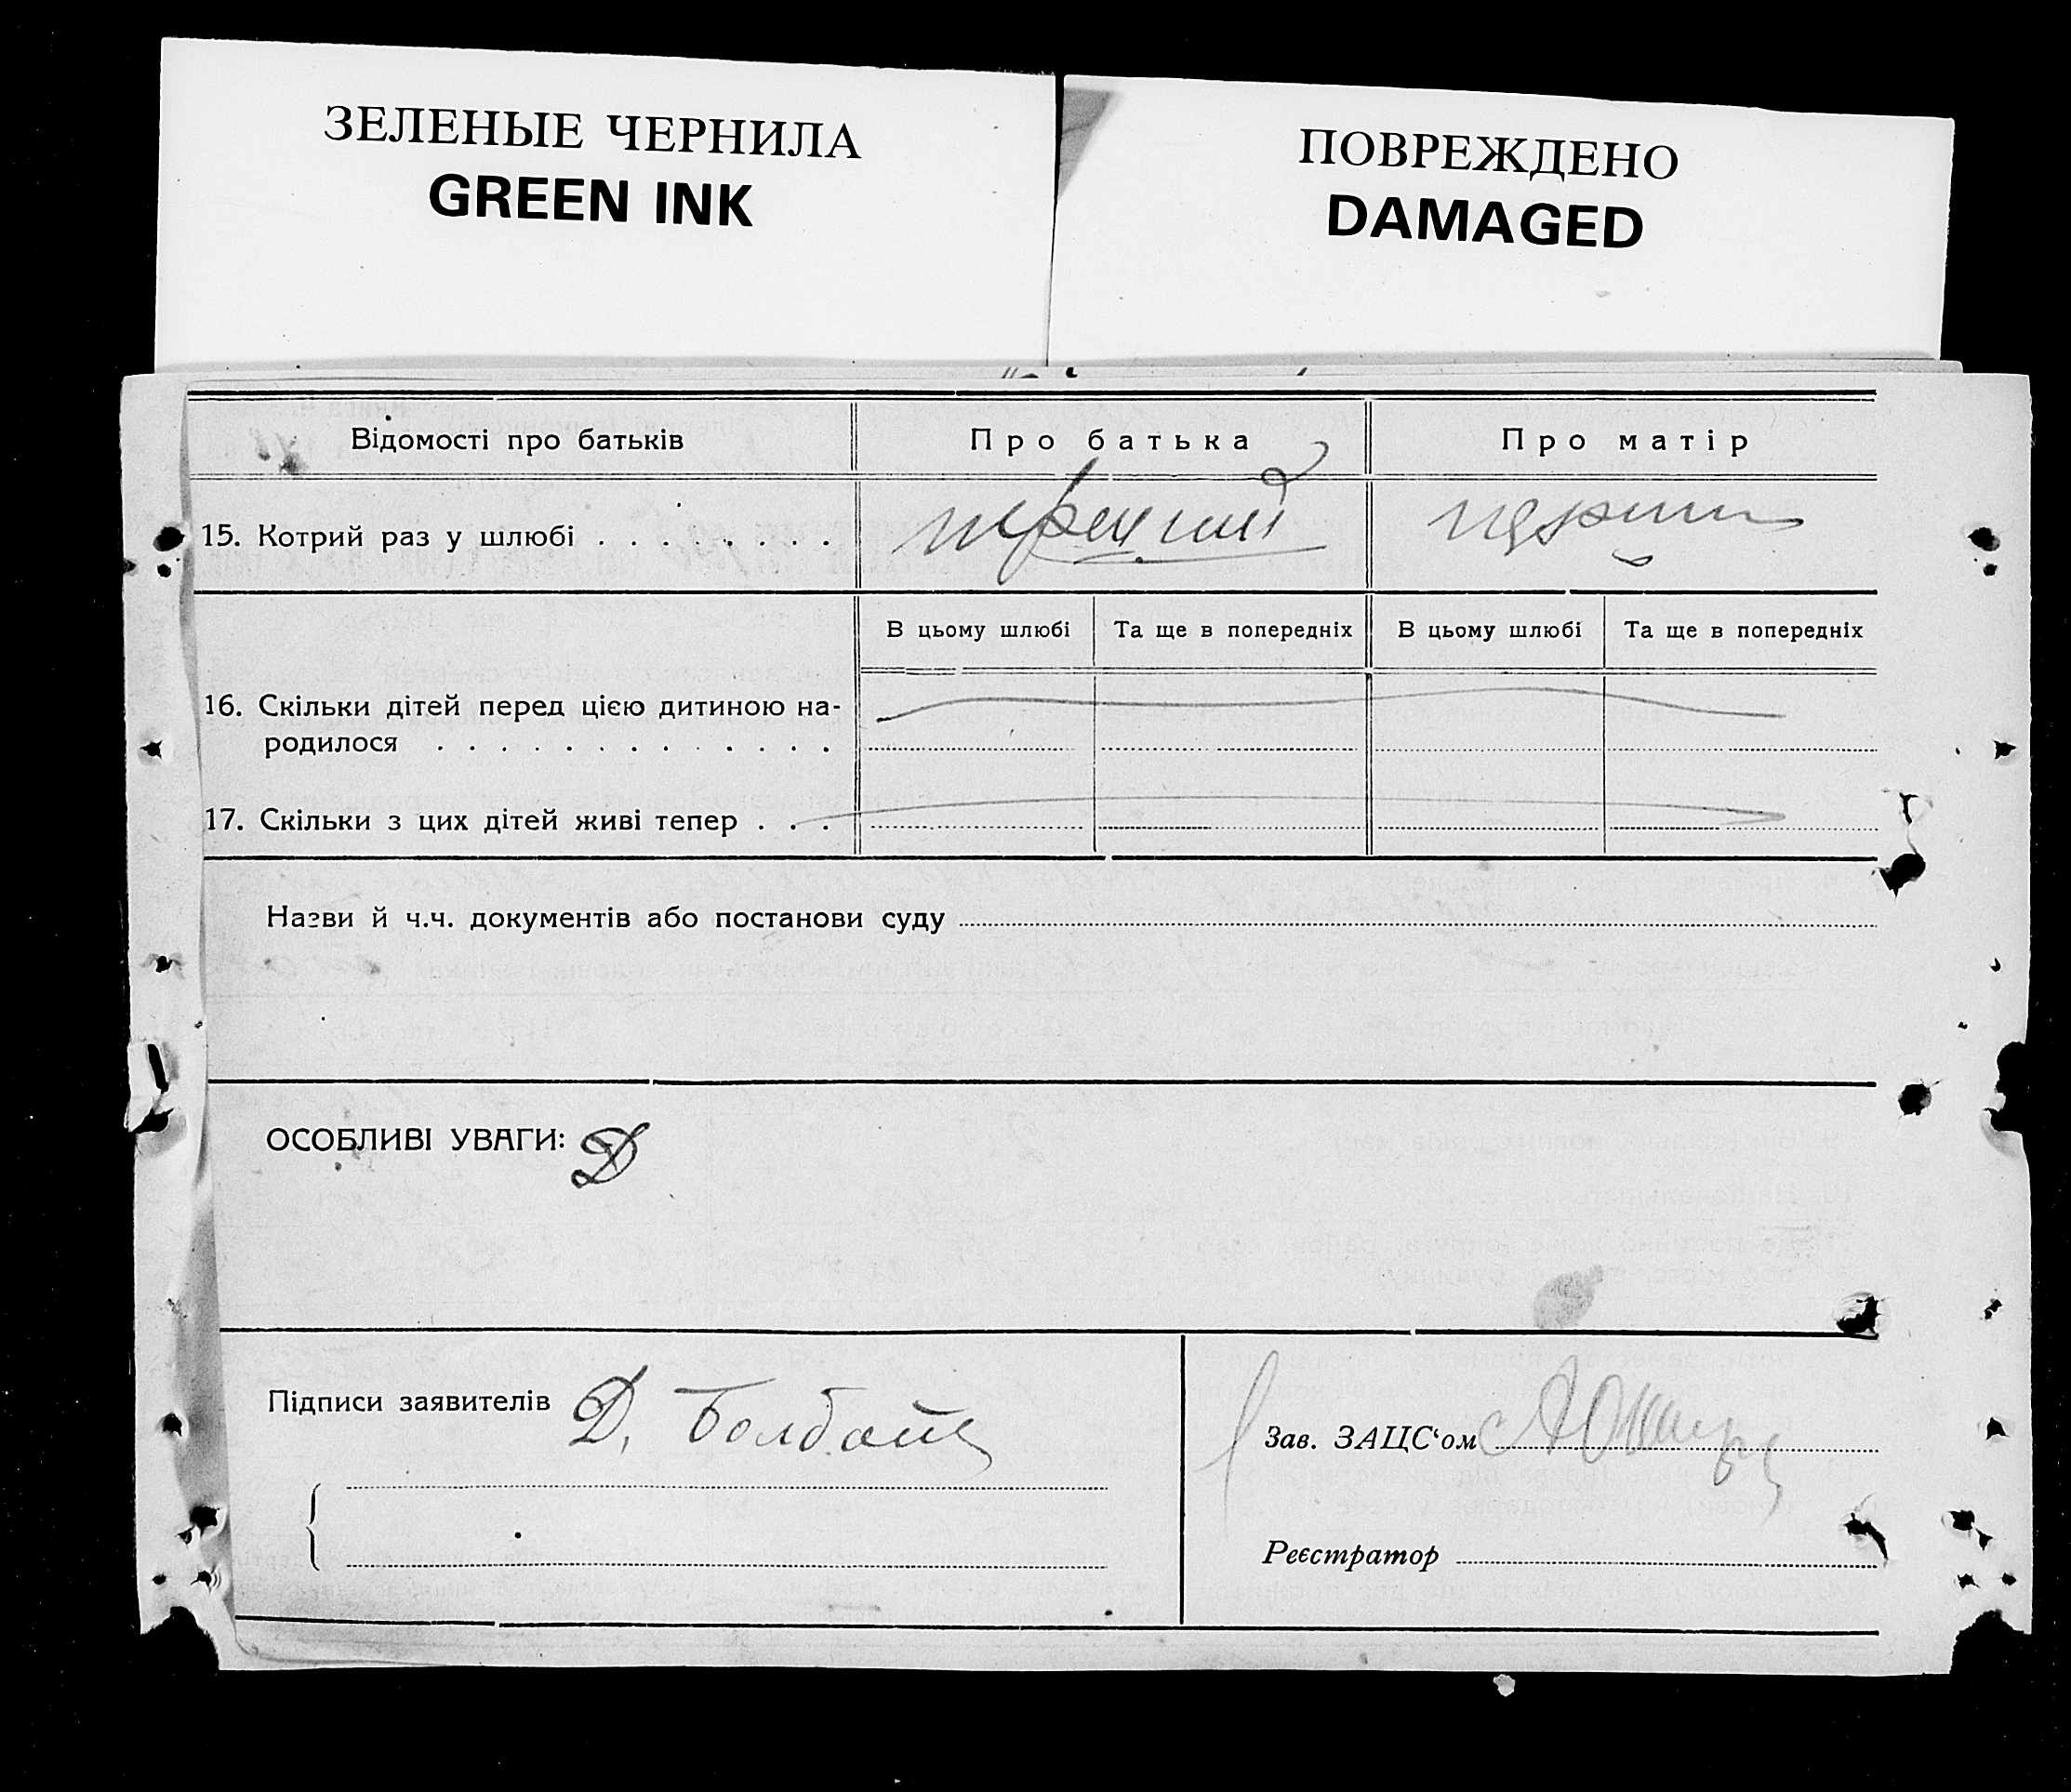 ЗЕЛЕНЫЕ ЧЕРНИЛА
GREEN INK
ПОВРЕЖДЕНО
DAMAGED
Відомості про батьків
Про батька
Про матір
15. Котрий раз у шлюбі . . . . . . . .
В цьому шлюбі
Та ще в попередніх
В цьому шлюбі
Та ще в попередніх
16. Скільки дітей перед цією дитиною на-
родилося . . . . . . . . . . . . .
17. Скільки з цих дітей живі тепер . . .
Назви й ч.ч. документів або постанови суду
ОСОБЛИВІ УВАГИ: Д
Підписи заявителів Д.
Зав. ЗАЦС‘ом
Реєстратор